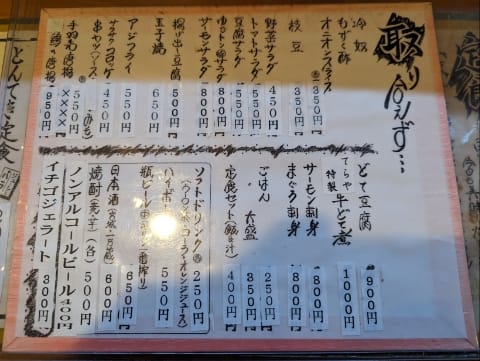 取り合えず…
冷奴
もずく酢
オニオンスライス
各350円
枝豆
350円
野菜サラダ
450円
トマトサラダ
550円
豆腐サラダ
550円
ゆでトン
サラダ
800円
サーモンサラダ
800円
揚げ出し豆腐
500円
玉子焼
650円
アジフライ
550円
サクサクコロッケ
450円
串カツ(ソース)
(みそ)
550円
手羽先唐揚
××××円
鶏の唐揚
950円
どて豆腐
900円
てらや特製 牛どて煮
1000円
サーモン刺身
800円
まぐろ刺身
800円
ごはん
250円
大盛
350円
定食セット(飯・汁)
400円
ソフトドリンク各250円
(ウーロン茶・コーラ・オレンジジュース)
550円
瓶ビール
一番搾り
650円
日本酒
600円
焼酎(麦・芋)(各)500円
ノンアルコールビール400円
イチゴジェラート 300円
とんてき定食